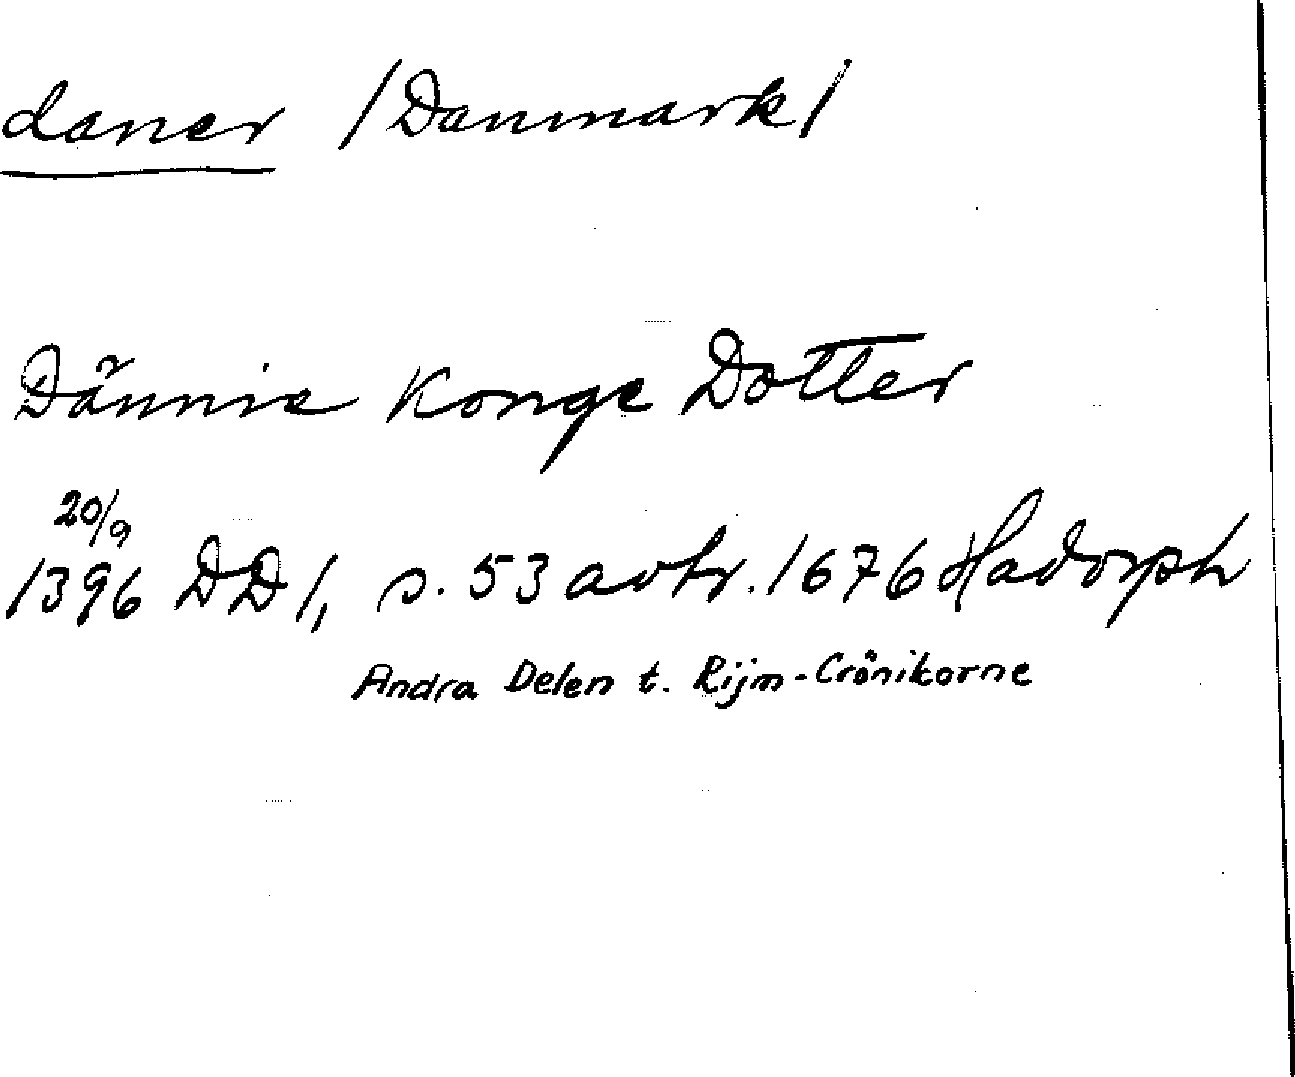 daner /Danmark/
Dännie Konge Dotter
20/9
1396 DD 1, s. 53 avtr. 1676 Hadorph
Andra Delen t. Rijm-Crönikorne